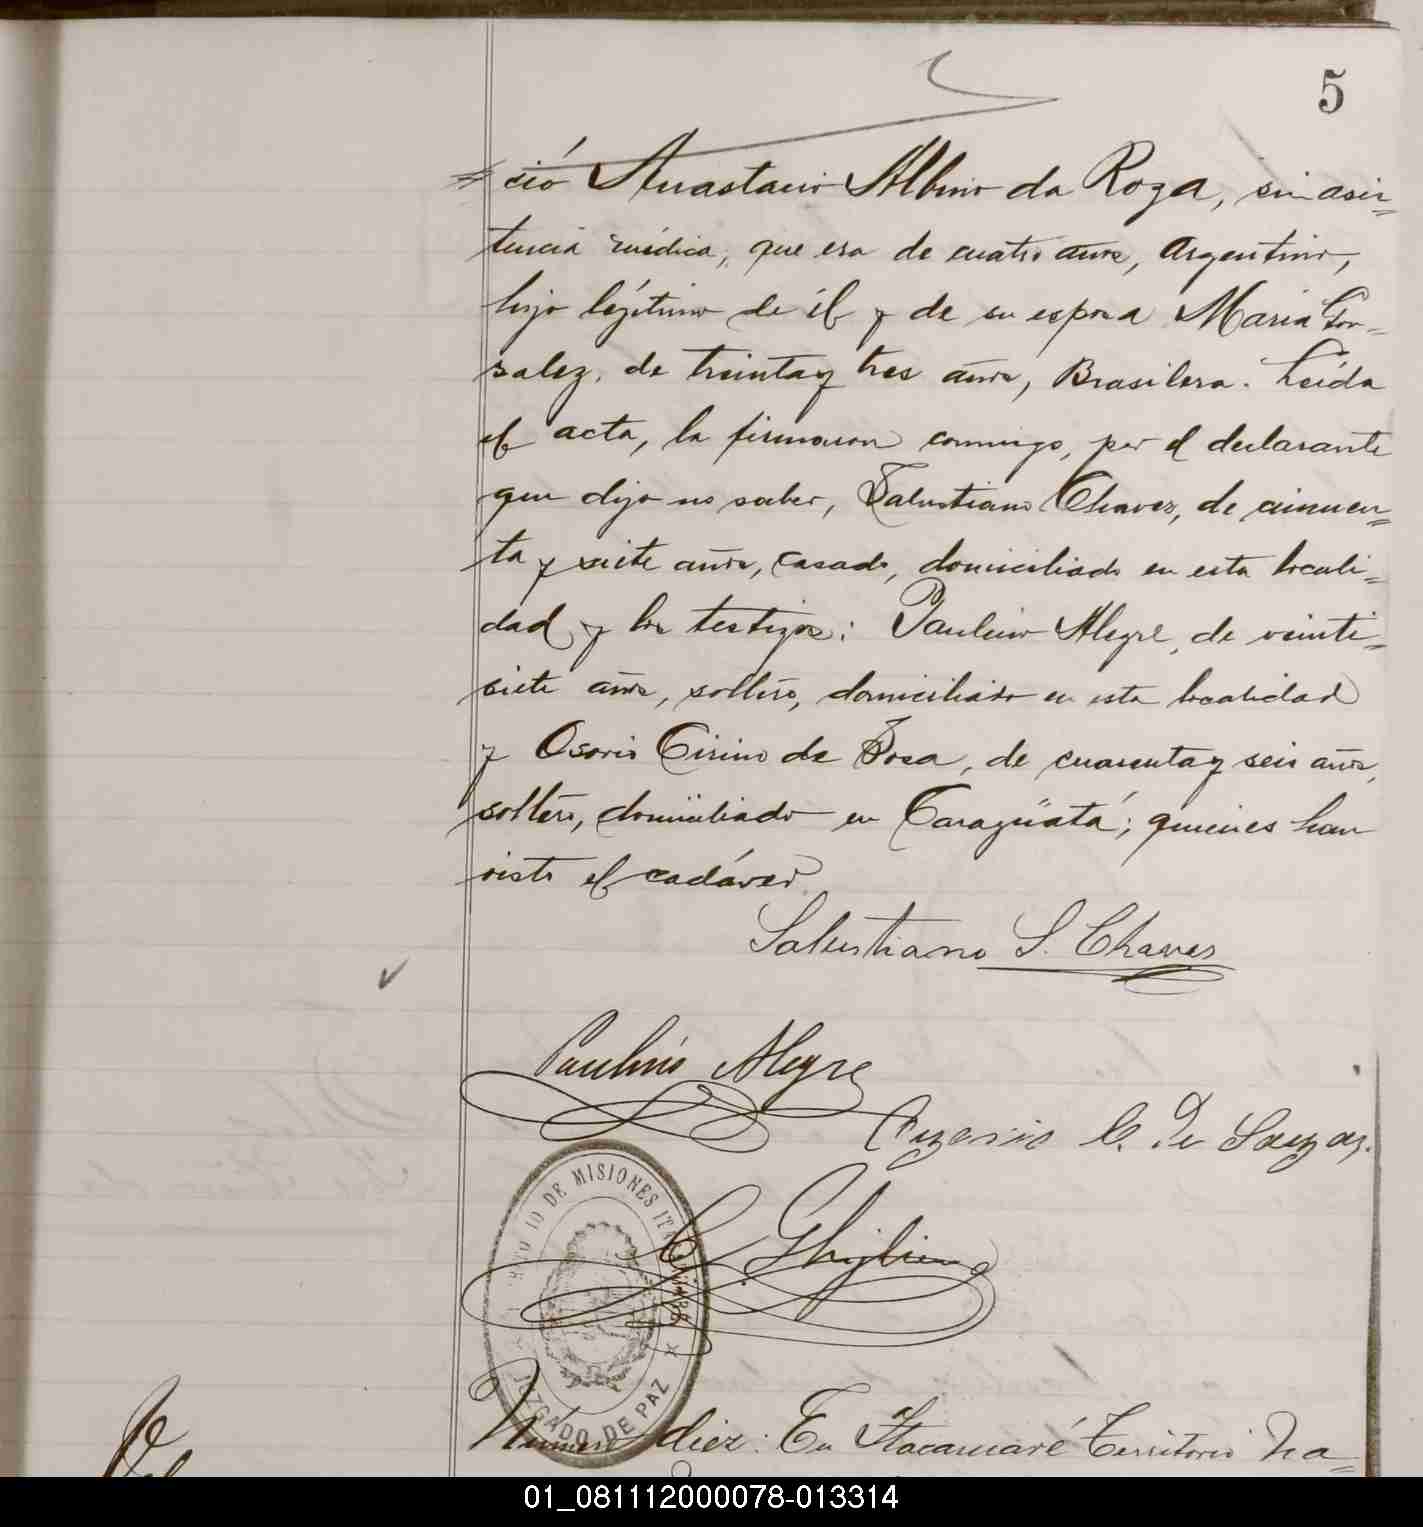 5
ció Anastacio Albino da Roza, sin asis=
tencia médica, que era de cuatro años, Argentino,
hijo legítimo de él y de su esposa Maria Gon=
zalez, de treinta y tres años, Brasilera. Leída
el acta, la firmaron conmigo, por el declarante
que dijo no saber, Salustiano Chaves, de cincuen=
ta y siete años, casado, domiciliado en esta locali=
dad y los testigos: Paulino Alegre, de veinti=
siete años, soltero, domiciliado en esta localidad
y Osorio Cirino de Sosa, de cuarenta y seis años,
soltero, domiciliado en Taragüatá; quienes han
visto el cadáver.
Salustiano S. Chaves
Paulino Alegre
C. de
Ghiglione
TERRITORIO DE MISIONES
JUZGADO DE PAZ
Número diez: En Itacaruaré Territorio Na=
01_081112000078-013314